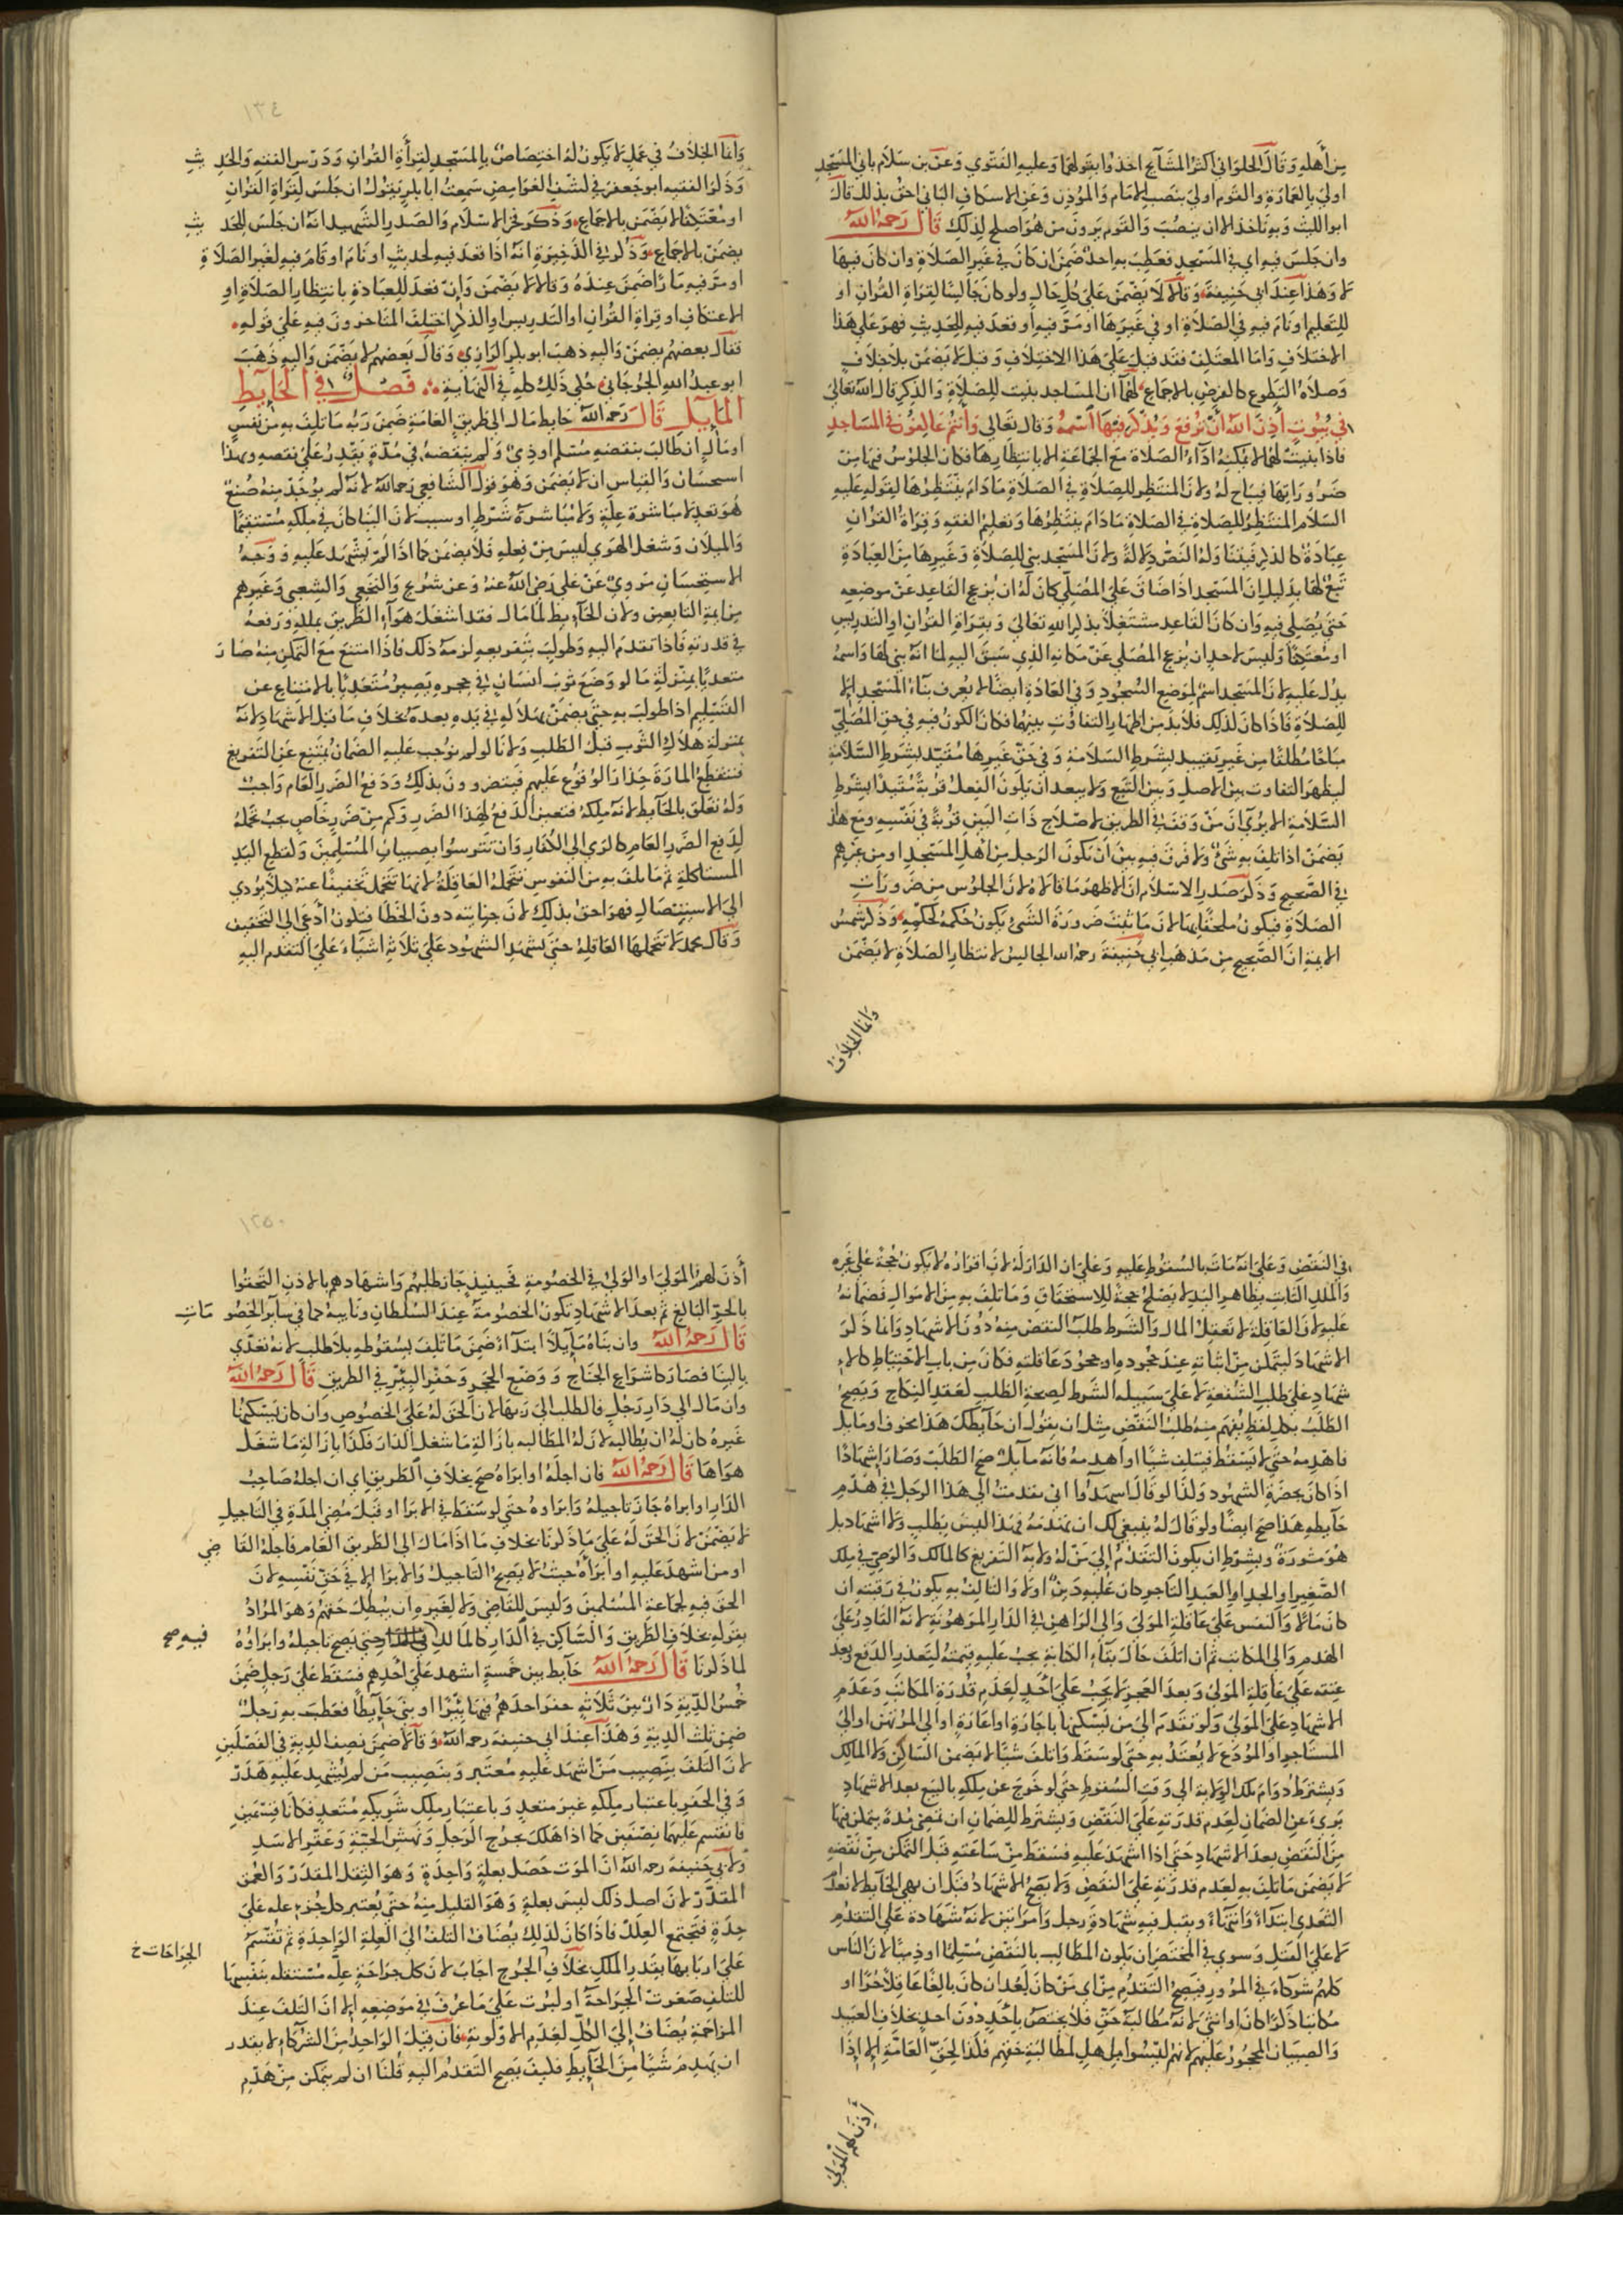 مِن أهلهِ وَقال الحلوَاني اكثر المشايخ اخذوا بقولهما وَعليهِ الفتوي وَعن بن سلام باني المسجد
اولي بالعمارة والقوم اولي بنصب الامام وَالموُذن وَعن الاسكاف الباني احق بذلك قالَ
ابو الليث وَبه ناخذ الا ان ينصُبَ وَالقوم يرَونَ من هوَ اصلح لذلك قال رَحمهُ الله
وان جلسَ فيهِ اي في المسَجدِ فعَطِبَ بهِ احد ضَمنَ ان كانَ في غيرِ الصّلاةِ وان كانَ فيهَا
لا وَهَذا عندَ ابي حَنيفة وَقالا لا يضمَن عَليَ كلِ حَالٍ ولو كانَ جَالسًا لقِراةِ القُرانِ او
للتعليم او نامَ فيهِ في الصّلاةِ او في غيرَها او مَرّ فيهِ او قعدَ فيه للحديثِ فهوَ عَلي هَذا
الاختلافِ وَاما المعتكف فقد قيلَ عَليَ هَذا الاختلافِ وَقيلَ لا يضمَن بلا خِلافٍ
وَصلاةُ التطوعِ كالفرضِ بالاجماعِ لهما ان المسَاجد بنيت للصَلاةِ وَالذكرِ قال الله تعالي
في بُيوتٍ أذنَ اللهُ أن تُرفعَ وَيُذكرَ فيهَا اسمُهُ وَقالَ تعَالي وَأنتمُ عَاكِفونَ في المسَاجدِ
فاذا بنيتْ لهَا لا يمكنهُ ادَاءُ الصّلاة مَع الجمَاعَةِ الا بانتظارِهَا فكانَ الجلوسُ فيهَا مِن
ضرُورَاتِها فيباح لهُ وَلان المنتظِر للصَلاةِ في الصّلاةِ مَادَامَ ينتَظِرُها لقولهِ عَليهِ
السَلام المنتظِرُ للصَلاةِ في الصَلاةِ مَادَامَ ينتظِرُهَا وَتعليمُ الفقهِ وَقِراة القرانِ
عبَادَة كالذكرِ فيتنَاوَلهُ النصُّ دلالةً وَلانَ المسَجد بني للصَلاةِ وَغيرِها مِنَ العبَادَةِ
تبعٌ لهَا بدَليلِ انَ المسجد اذا ضَاقَ عَلي المصُلي كانَ لهُ ان يزعج القاعدَ عَن موضعِهِ
حَتيَ يُصَلي فيهِ وَان كانَ القاعِد مشتغلاً بذكرِ اللهِ تعَاليَ وَبقِراةِ القُرانِ او التدريسِ
او مُعتكفاً وَليسَ لاحدٍ ان يزعج المصَلي عَنْ مَكانهِ الذي سَبقَ اليهِ لمَا انهُ بني لهَا وَاسمهُ
يدل عَليهِ لانَ المسَجد اسمٌ لموَضعِ السُجوُدِ وَفي العَادَةِ ايضًا لا يُعرف بنَآءُ المَسجدِ الا
للصَلاةِ فاذا كانَ لذلك فلا بدّ مِن اظهارِ التفاوُتِ بينهُما فكانَ الكونُ فيهِ في حَقِ المصُلي
مبَاحًا مُطلقًا مِن غيرِ تقييدٍ بشرطِ السَلامةِ وَفي حَقِّ غيرِهَا مُقيّد بشرطِ السَّلامةِ
ليظهرَ التفاوت بينَ الاصلِ وَبينَ التبَعِ وَلا يبعد ان يكونَ الفِعلُ قُربة مُقيّداً بشرطِ
السَّلامَةِ الا يرُيَ انَ مَنْ وَقفَ في الطريقِ لاصلاحِ ذَاتِ البَينِ قُربةً في نَفسِهِ وَمَع هَذا
يَضمَنُ اذا تلِفَ بهِ شيٌ وَلا فرقَ فيهِ بينَ أن يكونَ الرَجل مِن أهلِ المسَجدِ او مِن غيرِهم
في الصّحيحِ وَذَكر صَدر الاسلام انَ الاظهرَ مَا قالا لانَ الجلوُس من ضرورَاتِ
الصَلاةِ فيكونُ ملحَقًا بهَا لانَ مَا ثبتَ ضرورَةَ الشيِ يكونُ حُكمهُ كحكمِهِ وَذكر شمسُ
الايمة انَّ الصَّحِيحَ مِن مَذهَبِ ابي حَنيفةَ رحمه الله الجالسُ لانتظارِ الصَلاةِ لا يَضمَنُ
وَانما الخلافُ
١٣٤
وَانما الخلافُ في عَملٍ لا يَكونُ لهُ اختصَاصٌ بالمسجدِ لقِرأةِ القرانِ وَدَرسِ الفقهِ وَالحد يثِ
وَذكرَ الفقيه ابو جَعفرَ في كشفِ الغوَامِضِ سَمِعتُ ابا بكرٍ يقوُل ان جلسَ لقرَاةِ القرانِ
او مُعتكِفًا لا يضمَن بالاجماعِ وَذكرَ فخرُ الاسلام وَالصدرُ الشهيد انهُ ان جَلسَ للحد يثِ
يضمَنْ بالاجماعِ وَذكرَ في الذَخيرَةِ انهُ اذا قعدَ فيهِ لحديثٍ او نَامَ او قامَ فيهِ لغيرِ الصَلاةِ
او مرّ فيهِ مَارًّا ضَمنَ عندَهُ وَقالا لا يضمَن وَانْ قعدَ للعِبَادَةِ بانتظارِ الصلاةِ او
الاعتكافِ او قراةِ القُرانِ او التدريسِ او الذكرِ اختلفَ المتاخرونَ فيهِ عَلي قولهِ
فقال بعضهم يضمَن وَاليهِ ذهبَ ابو بكرٍ الرَازي وَقال بعَضهُم لا يَضمَن وَاليهِ ذهَبَ
ابو عبدُ اللهِ الجُرجاني حُكي ذلك كلهُ في النهاية فصل في الحَايطِ
المايل قالَ رَحمهُ الله حَايط مَال الي طريقِ العامة ضَمنَ رَبهُ مَا تلِفَ بهِ مِن نفسٍ
او مَالٍ ان طَالبَ بنقضهِ مُسلم او ذِميٌ وَلم ينقضهُ في مُدّةٍ يقدِرُ عَليَ نقضِهِ وَهذا
استحسَانٌ وَالقيَاس ان لا يَضمَن وَهوَ قول الشَافعي رَحمهُ الله لانهُ لم يوُجَد منهُ صُنعٌ
هُوَ تعدٍّ لا مبَاشرة عِلةٍ وَلا مُبَاشرةُ شرطٍ او سببٍ لانَ البنَا كانَ في ملكهِ مُستقيمًا
وَالميلان وَشغل الهَوي ليسَ مِن فِعلهِ فلا يضمَن كما اذا لم يشهَد عَليهِ وَوَجهُ
الاستحسَانِ مَرويٌ عَن عَلي رَضيَ اللهُ عنهُ وَعن شرُيحٍ وَالنخعي وَالشعبي وَغيرهم
مِن ايمةِ التابعينِ وَلان الحايط لما مَالَ فقد اشتغلَ هَوآء الطريقِ بملكهِ وَرفعهُ
في قدرتهِ فاذا تقدمَ اليهِ وَطولِبَ بتفريعهِ لزمهُ ذلك فاذا امتنعَ معَ التمكنِ منهُ صَارَ
متعديًا بمنزلةِ مَا لو وَضعَ ثوبَ انسَانٍ في حجرهِ يَصيرُ مُتعَديًا بالامتناع عن
التَسليم اذا طولبَ بهِ حتيَ يضمنَ بهلاكهِ في يدهِ بعدهُ بخلافِ مَا قبلَ الاشهادِ لانهُ
بمنزلةِ هَلاكِ الثوبِ قبلَ الطَلبِ وَلانا لو لم نوجب عَليهِ الضَمانَ يمتنعُ عَن التَفريغِ
فتنقطعُ المارَة حِذارَ الوُقوُعِ عَليهم فيتضررونَ بذلك وَدَفعُ الضررِ العَامِ وَاجبٌ
وَلهُ تعَلق بالحايطِ لانهُ ملكهُ فتعينَ الدَفع لهَذا الضررِ وَكم مِن ضررٍ خَاصٍ يجب تحملهُ
لدَفعِ الضررِ العَامِ كالرَمي الي الكفارِ وَان تترسوُا بصِبيانِ المسُلِمينَ وَلقطعِ اليَدِ
المستَاكلةِ ثمّ مَا تلفَ بهِ من النفوسِ تتحملهُ العَاقِلةُ لانها تتحمل تخفيفًا عنهُ كيلا يؤدي
اليَ الاستيصَالِ فهوَ احقُ بذلك لانَ جنايتهُ دونَ الخطَأ فيكونُ أدْعَى الي التخَفيف
وَقال محمد لا تتحملهَا العَاقلةُ حتيَ تشهدَ الشهوُد عَلي ثلاثةِ اشيَآءَ عَلي التقدم اليهِ
في النقَضِ وَعَلى انهُ مَاتَ بالسُقوُطِ عَليهِ وَعَليَ ان الدَارَ لهُ لانَ اقرَارَهُ لا يَكونُ حُجةً عَلي غَيرهِ
وَالملكُ الثَابت بظاهرِ اليَدِ لا يَصلحُ حجةً للاستحقَاقِ وَمَا تلِفَ بهِ مِنَ الاموَالِ فضمَانهُ
عَليهِ لانَ العَاقِلةَ لا تعقلُ المالَ وَالشرط طلبُ النقضِ منهُ دُونَ الاشهادِ وَانما ذكرَ
الاشهادَ ليتمَكن مِنْ اثباتهِ عِندَ جُحودهِ او جحوُد عَاقلتهِ فكانَ مِن بابِ الاحتيَاطِ كالا
شهَادِ عَلي طلبِ الشُفعةِ لا عَلي سَبيل الشَرط لصِحةِ الطلبِ لعَقدِ النكاحِ وَيصحُ
الطَلبُ بكلِ لفظٍ يُفهم منهُ طلبُ النقَضِ مِثل ان يقوُل ان حَايطكَ هَذا مخوف او مَايل
فاهدِمهُ حَتي لا يَسقطَ فيتلِف شيئًا او اهدِمهُ فانهُ مآيلٌ صح الطلَب وَصَارَ اشهادًا
اذا كانَ بحضرةِ الشهوُد وَلذا لو قالَ اشهدُوا اني تقدمتُ الي هَذا الرجلِ في هَدمِ
حَايطهِ هَذا صحَ ايضًا ولو قالَ لهُ ينبغي لك ان تهدمَهُ فهَذا ليسَ بطلبٍ وَلا اشهادٍ بل
هوَ مشورَة وَيشرَط ان يكونَ التقدمُ اليَ مَن لهُ ولاية التفريغِ كالمالك وَالوصِي في ملك
الصَّغيرِ او الجدِ او العبَدِ التَاجرِ كانَ عَليهِ دَينٌ او لا وَالتالفُ بهِ يكونُ في رَقبتهِ ان
كانَ مَالاً وَالنفسُ عَلي عَاقلةِ الموَلي وَالي الرَاهنِ في الدَارِ المرَهُونةِ لانهُ القَادرُ عَلي
الهدمِ وَالي المكاتب ثم ان اتلفَ حَالَ بقآءِ الكتابةِ يجب عَليهِ قيمتهُ لتعذرِ الدَفعِ وَبعد
عِتقهِ عَلي عَاقِلةِ الموَليَ وَبعدَ العجزِ لا يجبُ عَلي أحدٍ لعَدَمِ قدُرة المكاتَبِ وَعَدَمِ
الاشهادِ عَلي الموَليَ وَلو تقدمَ اليَ من يسَكنهَا باجَارَةٍ او اعَارَةٍ او الي المُرتهنِ او الي
المستاجِر او المُودَعِ لا يُعتدُ بهِ حَتي لو سَقط وَاتلفَ شيئًا لا يضمَن السَاكِن وَلا المَالِك
وَيشترط دَوَامَ تلك الوِلاية الي وَقتِ السُقوطِ حَتي لو خَرجَ عن ملكهِ بالبَيعِ بعد الاشهادِ
بَريَ عَن الضمَانِ لعَدمِ قدرتهِ عَليَ النقَضِ وَيشترط للضمَانِ ان تمضي مُدة يتمكن فيهَا
مِنَ النقَضِ بعدَ الاشهادِ حَتيَ اذا اشهدَ عَليهِ فسقطَ مِن سَاعتهِ قبلَ التمكنِ مِنْ نقضهِ
لا يضمَن مَا تلفَ بهِ لعدَم قدرتهِ عَليَ النقضِ وَلا يصحُ الاشهادُ قبلَ ان يهي الحَايط لانعدام
التَعَدي ابتدآءً وَانتهآءً ويقبل فيهِ شهَادَة رجلٍ وَامرَاتينِ لانهُ شَهَادَة عَلي التقدمِ
لا عَلي القَتلِ وَسوي في المختَصرِ ان يكونَ المطَالِب بالنَقضِ مُسلِمًا او ذِميًا لانَ الناس
كلهُم شركآءُ في المرُورِ فيَصِحُ التَقدُم مِن اي مَن كانَ بعد ان كانَ بالغًا عَاقِلاً حُرًّا او
مكاتبا ذكرًا كانَ او انثيَ لانهُ مُطَالبة حَقٍ فلا يختصَ بأحدٍ دُونَ احدٍ بخلافِ العَبيد
وَالصِبيَان المحَجُورُ عَليهِم لانهُم ليسُوا مِن اهلِ المطَالبَةِ حَقهِم فكذا لحقِّ العَامّةِ الا إذَا
أذنَ لهُم المَوليَ
١٣٥
أذنَ لهمُ الموَليَ او الوَلي في الخصُومةِ فحينيذٍ جَازَ طلبهُم وَاشهادهم بالاذنِ التحَقوا
بالحرِّ البَالغِ ثم بعدَ الاشهادِ تكونُ الخصُومة عِندَ السُلطانِ وَنايبهِ كما في سَايرِ الخصُو مَاتِ
قال رَحمهُ الله وان بناهُ مَايلاً ابتدآءً ضمنَ مَا تلِفَ بسُقوُطهِ بلا طلبٍ لانهُ تعدّي
بالبنَا فصَارَ كاشراعِ الجنَاحِ وَوَضعِ الحَجرِ وَحفرِ البئرِ في الطريقِ قال رَحمهُ الله
وان مَالَ الي دَارِ رَجلٍ فالطلب اليَ رَبهَا لانَ الحَقَ لهُ عَلي الخصُوصِ وان كانَ يسَكنهَا
غيرهُ كانَ لهُ ان يُطالبهُ لانَ لهُ المطَالبه بازَالةِ مَا شغلَ الدَارَ فكذا بازَالةِ مَا شغلَ
هوَاهَا قالَ رَحمهُ الله فان اجلهُ او ابرَاهُ صحَ بخلافِ الطريقِ اي ان اجلهُ صَاحبُ
الدَارِ او ابراهُ جَازَ تاجيلهُ وَابرَاوهُ حَتيَ لو سَقطَ في الابرا او قبلَ مُضي المدَةِ في التاجيلِ
لا يَضمَنُ لانَ الحَقَ لهُ عَلي مَا ذكرنا بخلافِ مَا اذا مَالَ الي الطَريقِ العَامِ فاجلهُ القَا ضي
او مَن اشهدَ عَليهِ او ابرَأهُ حيثُ لا يَصحُ التَاجيلُ وَالابرَا الا في حَقِّ نَفسِهِ لانَ
الحقَ فيهِ لجمَاعةِ المُسلمينَ وَليسَ للقَاضي وَلا لغَيرهِ ان يُبطلَ حَقهُم وَهوَ المرَادُ
بقولهِ بخلافِ الطريقِ وَالسَاكِن في الدَارِ كالمالك حَتي يَصحَ تاجيلهُ وابرَاوهُ
فيهِ صح
لمَا ذكرنَا قالَ رَحمهُ الله حَايط بينَ خمسةٍ اشهدَ عَليَ أحدِهِم فسَقط عَلي رَجلٍ ضمنَ
خُمسَ الدِيةِ دَارٌ بينَ ثلاثةٍ حفرَ احدهُم فيهَا بيرًا او بنيَ حَايطًا فعَطبَ بهِ رَجلٌ
ضمنَ ثلثَ الديةِ وَهَذا عندَ ابي حنيفةَ رحمه الله وَقالا ضمنَ نصفَ الديةِ في الفَصلَينِ
لانَ التلفَ بنَصِيب مَن اشهدَ عَليهِ مُعتَبر وَبنصِيب مَن لم يُشهدِ عَليهِ هَدَرٌ
وَفي الحفرِ باعتبارِ ملكهِ غيرَ متعدٍ وَباعتبارِ ملك شَريكهِ مُتعَدٍ فكانا قِسمَينِ
فانقسمَ عَليهمَا نِصفَينِ كما اذا هَلكَ بجرحِ الرَجلِ وَنهشِ الحيّةِ وَعَقرِ الاسَدِ
وَلابي حَنيفة رحمه الله انَ الموَت حَصلَ بعلةٍ وَاحِدَةٍ وَهوَ الثِقلُ المقَدَّرُ وَالعمقُ
المقدّرُ لانَ اصل ذلك ليسَ بعلةٍ وَهوَ القليلُ منهُ حتيَ يُعتبر كل جُزءٍ علة عَليَ
حِدَةٍ فتجتَمع العِلَل فاذا كانَ كذلك يُضَافُ التلفُ اليَ العِلةِ الوَاحِدَةِ ثم تُقسَّمُ
عَلي اربابهَا بقدرِ الملك بخلافِ الجُرحِ اجَابَ لانَ كل جِرَاحَةٍ علةٌ مُستقلة بنفسِهَا
الجِرَاحَات خ
للتلفِ صَغرتْ الجرَاحَةُ او كبُرت عَليَ مَا عُرفَ في مَوضعِهِ الا انَ التلفَ عندَ
المزَاحمَةِ يُضَافُ إليَ الكلِّ لعدَمِ الاولويةِ فان قيلَ الوَاحدُ مِنَ الشركآءِ لا يقدر
ان يَهدِمَ شيئًا مِنَ الحَايطِ فكيفَ يَصِح التَقدمُ اليهِ قُلنَا ان لم يتمَكن مِنْ هَدمِ